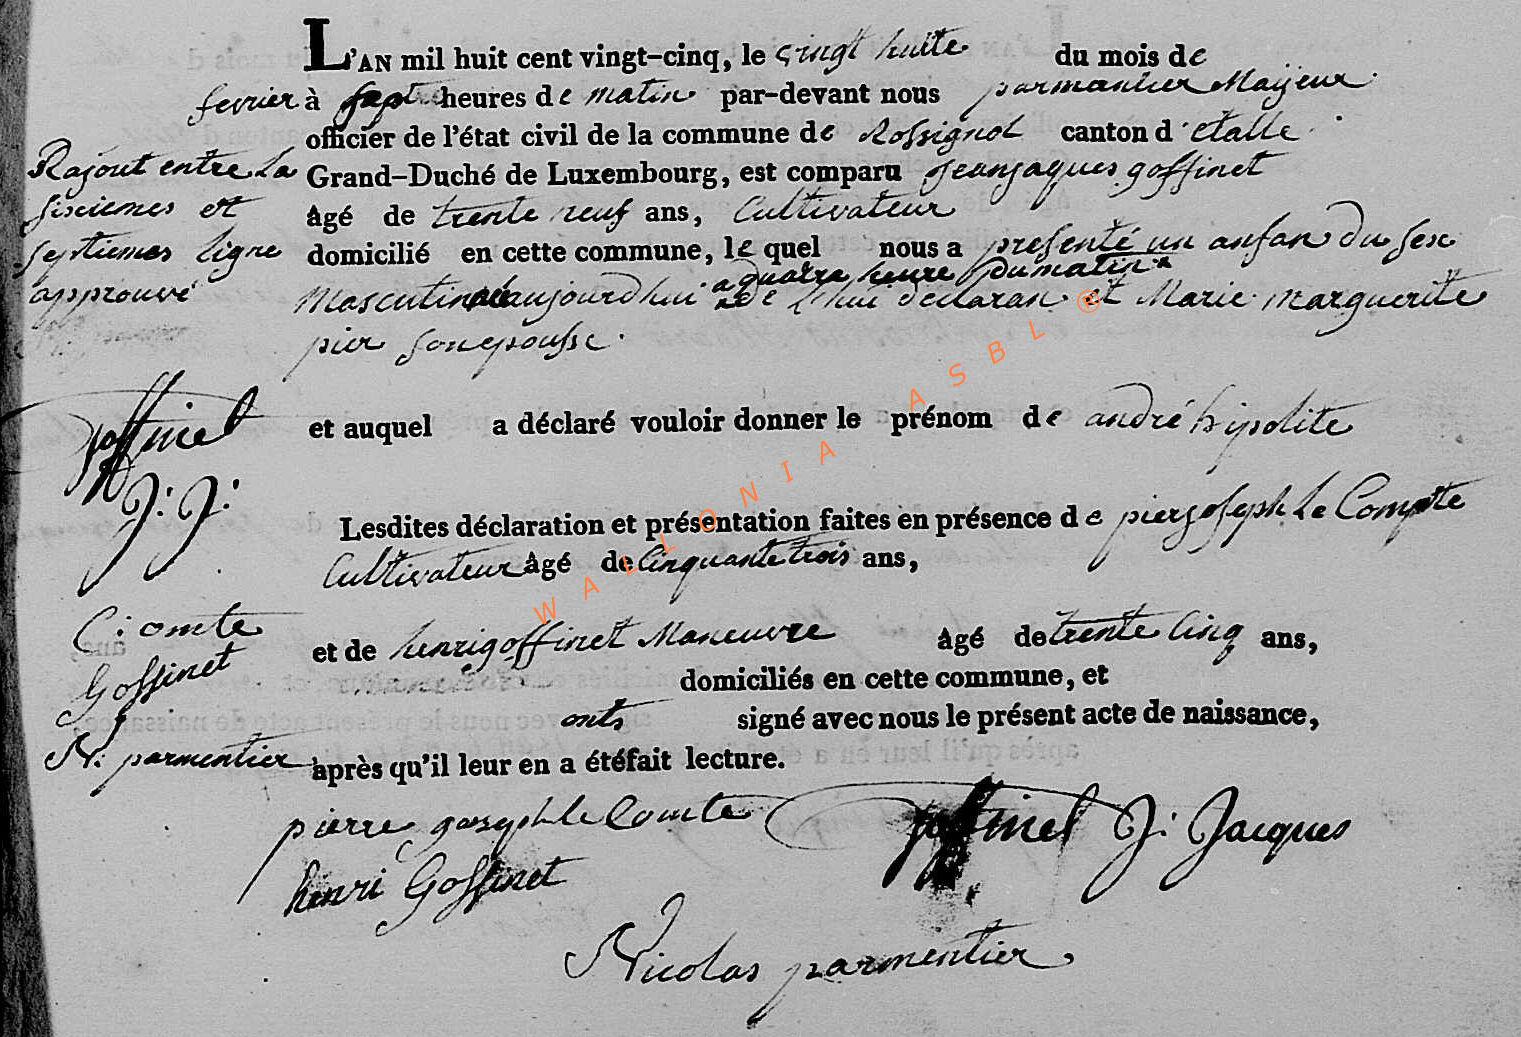 L'AN mil huit cent vingt-cinq, le vingt huite du mois de
fevrier à sept heures de matin par-devant nous parmantier Maÿeur
officier de l'état civil de la commune de Rossignol canton d'etalle
Grand-Duché de Luxembourg, est comparu Jeanjaques goffinet
âgé de trente neuf ans, Cultivateur
domicilié en cette commune, le quel nous a presenté un anfan du sex
a quatre heure du matin
Masculin né aujourdhui de lhui declaran et Marie marguerite
pier son epousse.
et auquel a déclaré vouloir donner le prénom de andré hipolite
Lesdites déclaration et présentation faites en présence de pierjoseph Le Compte
Cultivateur âgé de Cinquante trois ans,
et de henrigoffinet Maneuvre âgé de trente Cinq ans,
domiciliés en cette commune, et
onts signé avec nous le présent acte de naissance,
après qu'il leur en a été fait lecture.
pierre joseph le Comte
goffinet J: Jacques
henri Goffinet
Nicolas parmentier
Rajout entre La
sixiemes et
septiemes ligne
approuvé
goffinet
J: J:
C: omte
Goffinet
N: parmentier
WALLONIA ASBL ©